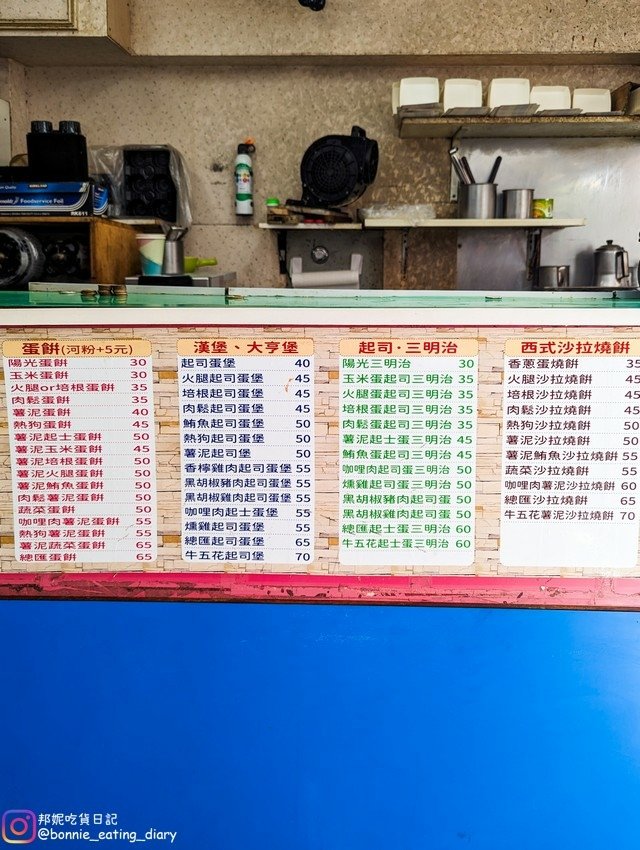 KIRKLAND
Foodservice Foil
RK611
蛋餅(河粉+5元)
陽光蛋餅 30
玉米蛋餅 30
火腿or培根蛋餅 35
肉鬆蛋餅 35
薯泥蛋餅 40
熱狗蛋餅 45
薯泥起士蛋餅 50
薯泥玉米蛋餅 45
薯泥培根蛋餅 50
薯泥火腿蛋餅 50
薯泥鮪魚蛋餅 50
肉鬆薯泥蛋餅 50
蔬菜蛋餅 50
咖哩肉薯泥蛋餅 55
熱狗薯泥蛋餅 55
薯泥蔬菜蛋餅 65
總匯蛋餅 65
漢堡、大亨堡
起司蛋堡 40
火腿起司蛋堡 45
培根起司蛋堡 45
肉鬆起司蛋堡 45
鮪魚起司蛋堡 50
熱狗起司蛋堡 50
薯泥起司堡 50
香檸雞肉起司蛋堡 55
黑胡椒豬肉起司蛋堡 55
黑胡椒雞肉起司蛋堡 55
咖哩肉起士蛋堡 55
燻雞起司蛋堡 55
總匯起司堡 65
牛五花起司堡 70
起司·三明治
陽光三明治 30
玉米蛋起司三明治 35
火腿蛋起司三明治 35
培根蛋起司三明治 35
肉鬆蛋起司三明治 35
薯泥起士蛋三明治 45
鮪魚蛋起司三明治 45
咖哩肉起司蛋三明治 50
燻雞起司蛋三明治 50
黑胡椒豬肉起司蛋 50
黑胡椒雞肉起司蛋 50
總匯起士蛋三明治 60
牛五花起士蛋三明治 60
西式沙拉燒餅
香蔥蛋燒餅 35
火腿沙拉燒餅 45
培根沙拉燒餅 45
肉鬆沙拉燒餅 45
熱狗沙拉燒餅 50
薯泥沙拉燒餅 50
薯泥鮪魚沙拉燒餅 55
蔬菜沙拉燒餅 55
咖哩肉薯泥沙拉燒餅 60
總匯沙拉燒餅 65
牛五花薯泥沙拉燒餅 70
邦妮吃貨日記
@bonnie_eating_diary